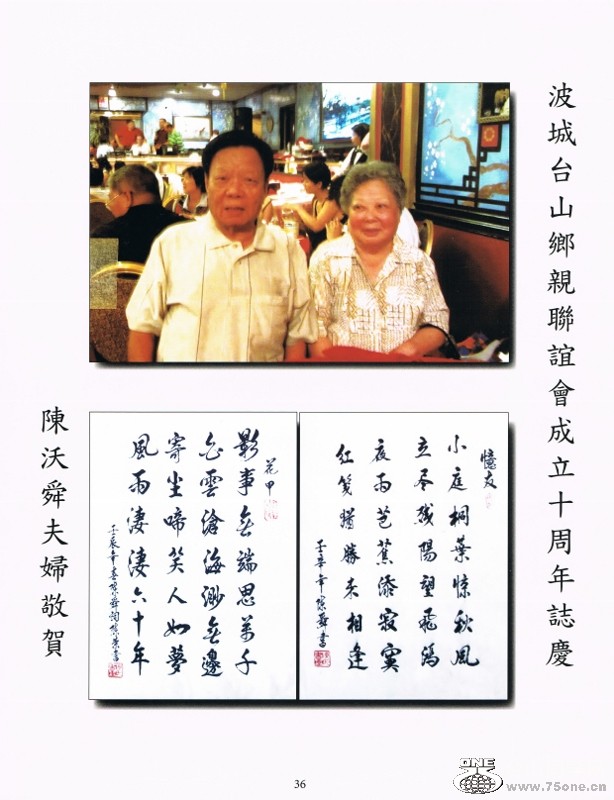 波城台山鄉親聯誼會成立十周年誌慶
憶友
小庭桐葉惊秋風
立尽残陽望飛鴻
夜雨芭蕉添寂寞
红箋勝未相逢
花甲
影事無端思萬千
白雲滄海渺無邊
寄尘啼笑人如夢
風雨淒淒六十年
陳沃舜夫婦敬賀
36
ONE
www.75one.cn